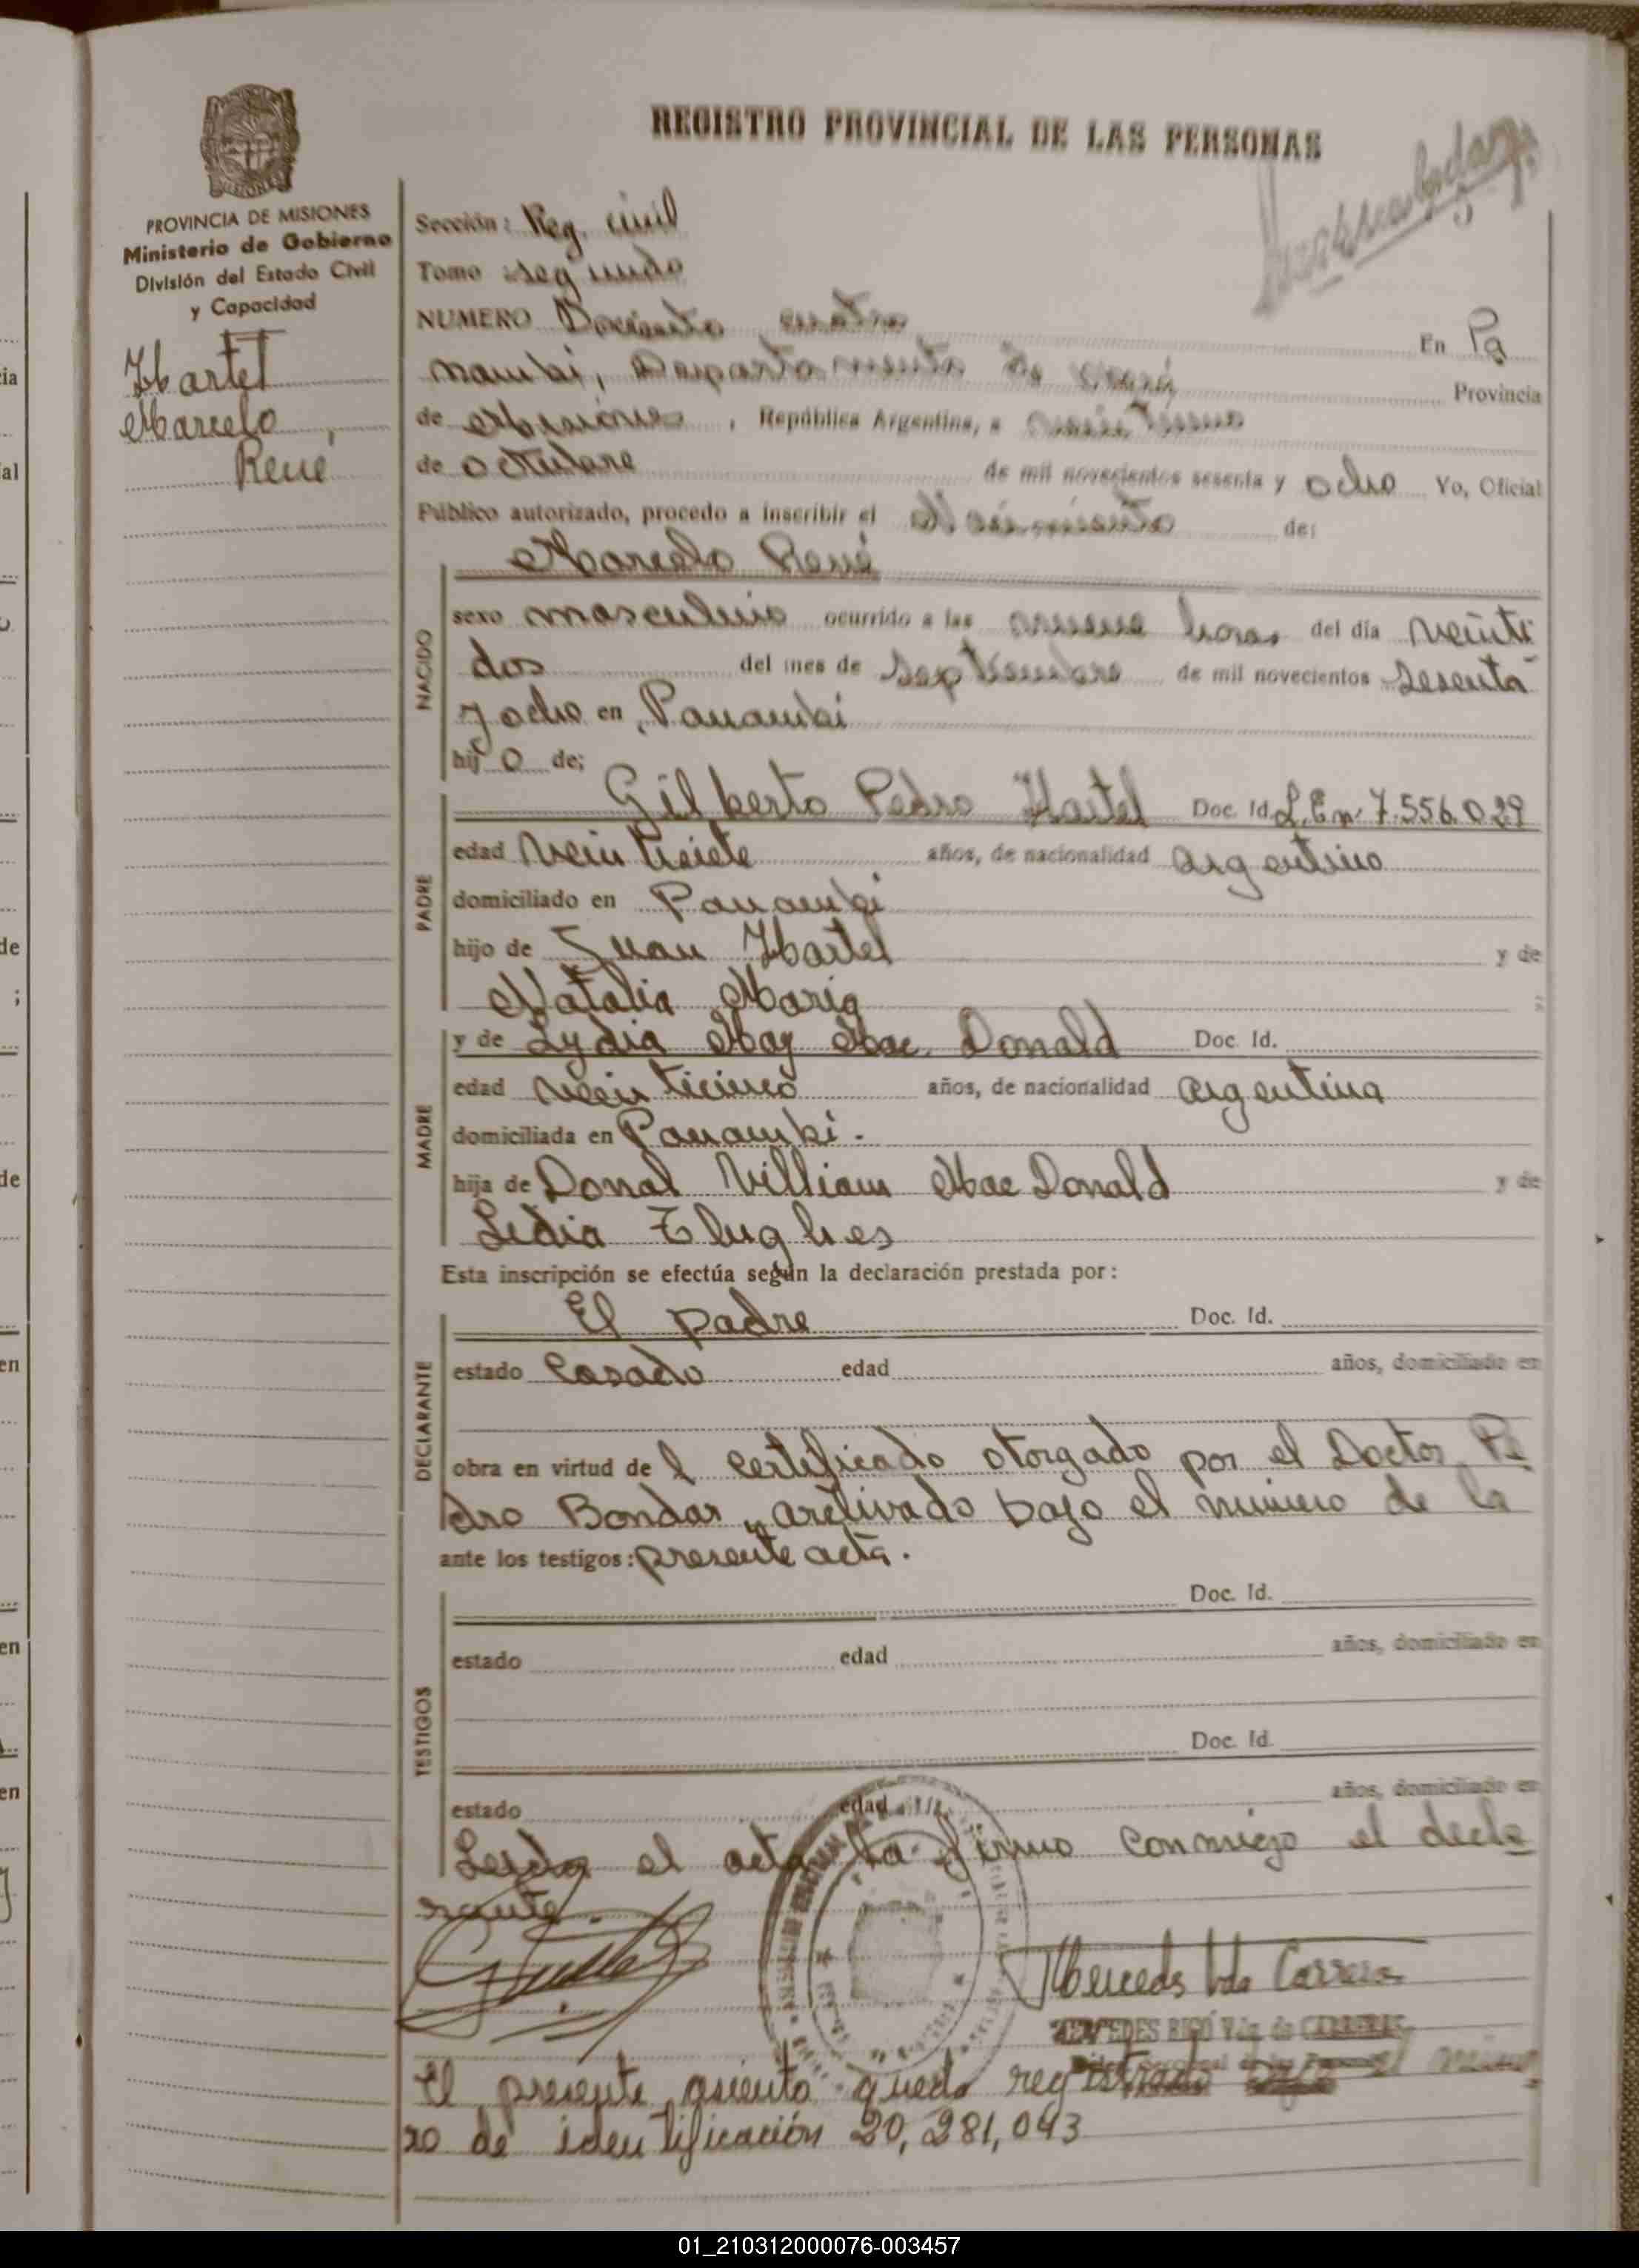 REGISTRO PROVINCIAL DE LAS PERSONAS
MISIONES
PROVINCIA DE MISIONES
Ministerio de Gobierno
División del Estado Civil
y Capacidad
Hartel
Marcelo,
René
Sección: Reg. civil
Tomo segundo
NUMERO Doscientos cuatro
En Pa
nambi, Departamento de
Provincia
de Misiones, República Argentina, a veintiuno
de octubre de mil novecientos sesenta y ocho Yo, Oficial
Público autorizado, procedo a inscribir el Nacimiento de:
Marcelo René
NACIDO
sexo masculino ocurrido a las nueve horas del día veinti
dos del mes de septiembre de mil novecientos sesenta
y ocho en Panambi
hij o de;
PADRE
Gilberto Pedro Hartel Doc. Id. L.E.nº 7.556.029
edad veintisiete años, de nacionalidad argentino
domiciliado en Panambi
hijo de Juan Hartel y de
Natalia Maria ;
MADRE
y de Lydia May Mac. Donald Doc. Id.
edad veinticinco años, de nacionalidad argentina
domiciliada en Panambi.
hija de Donal William Mac Donald y de
Lidia Hughes
Esta inscripción se efectúa según la declaración prestada por:
DECLARANTE
El padre Doc. Id.
estado Casado edad años, domiciliado en
obra en virtud de l certificado otorgado por el Doctor Pe
dro Bondar, archivado bajo el número de la
ante los testigos: presente acta.
TESTIGOS
Doc. Id.
estado edad años, domiciliado en
Doc. Id.
estado edad años, domiciliado en
Leida el acta la firma conmigo el decla
rante.
Mercedes Vda Carreras
MERCEDES RIGÓ Vda. de CARRERAS
El presente asiento queda registrado
ro de identificación 20,281,043
01_210312000076-003457